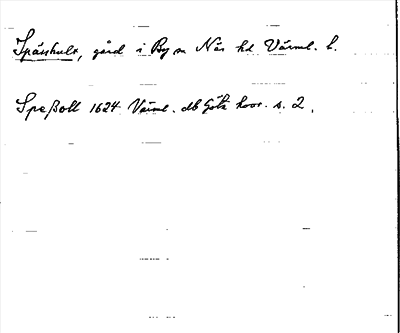 Spässhult, gård i By sn Näs hd Värml. l.
Speßolt 1624 Värml. db Göta hovr. s. 2.